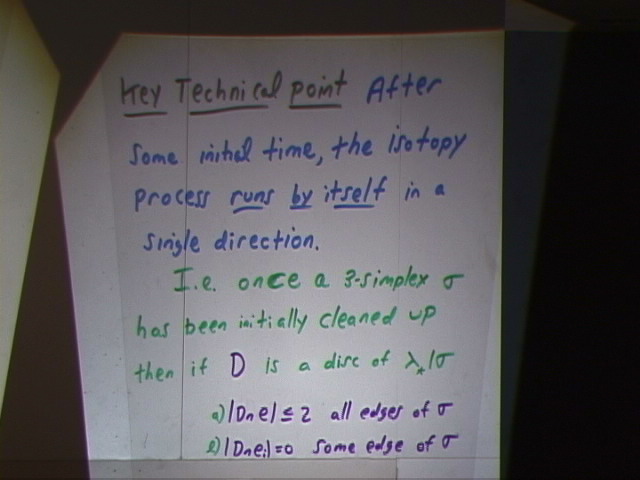 Key Technical point After
Some initial time, the isotopy
process runs by itself in a
single direction.
I.e. once a 3-simplex σ
has been initially cleaned up
then if D is a disc of λ*|σ
a) |D∩e| ≤ 2 all edges of σ
b) |D∩eᵢ| = 0 some edge of σ